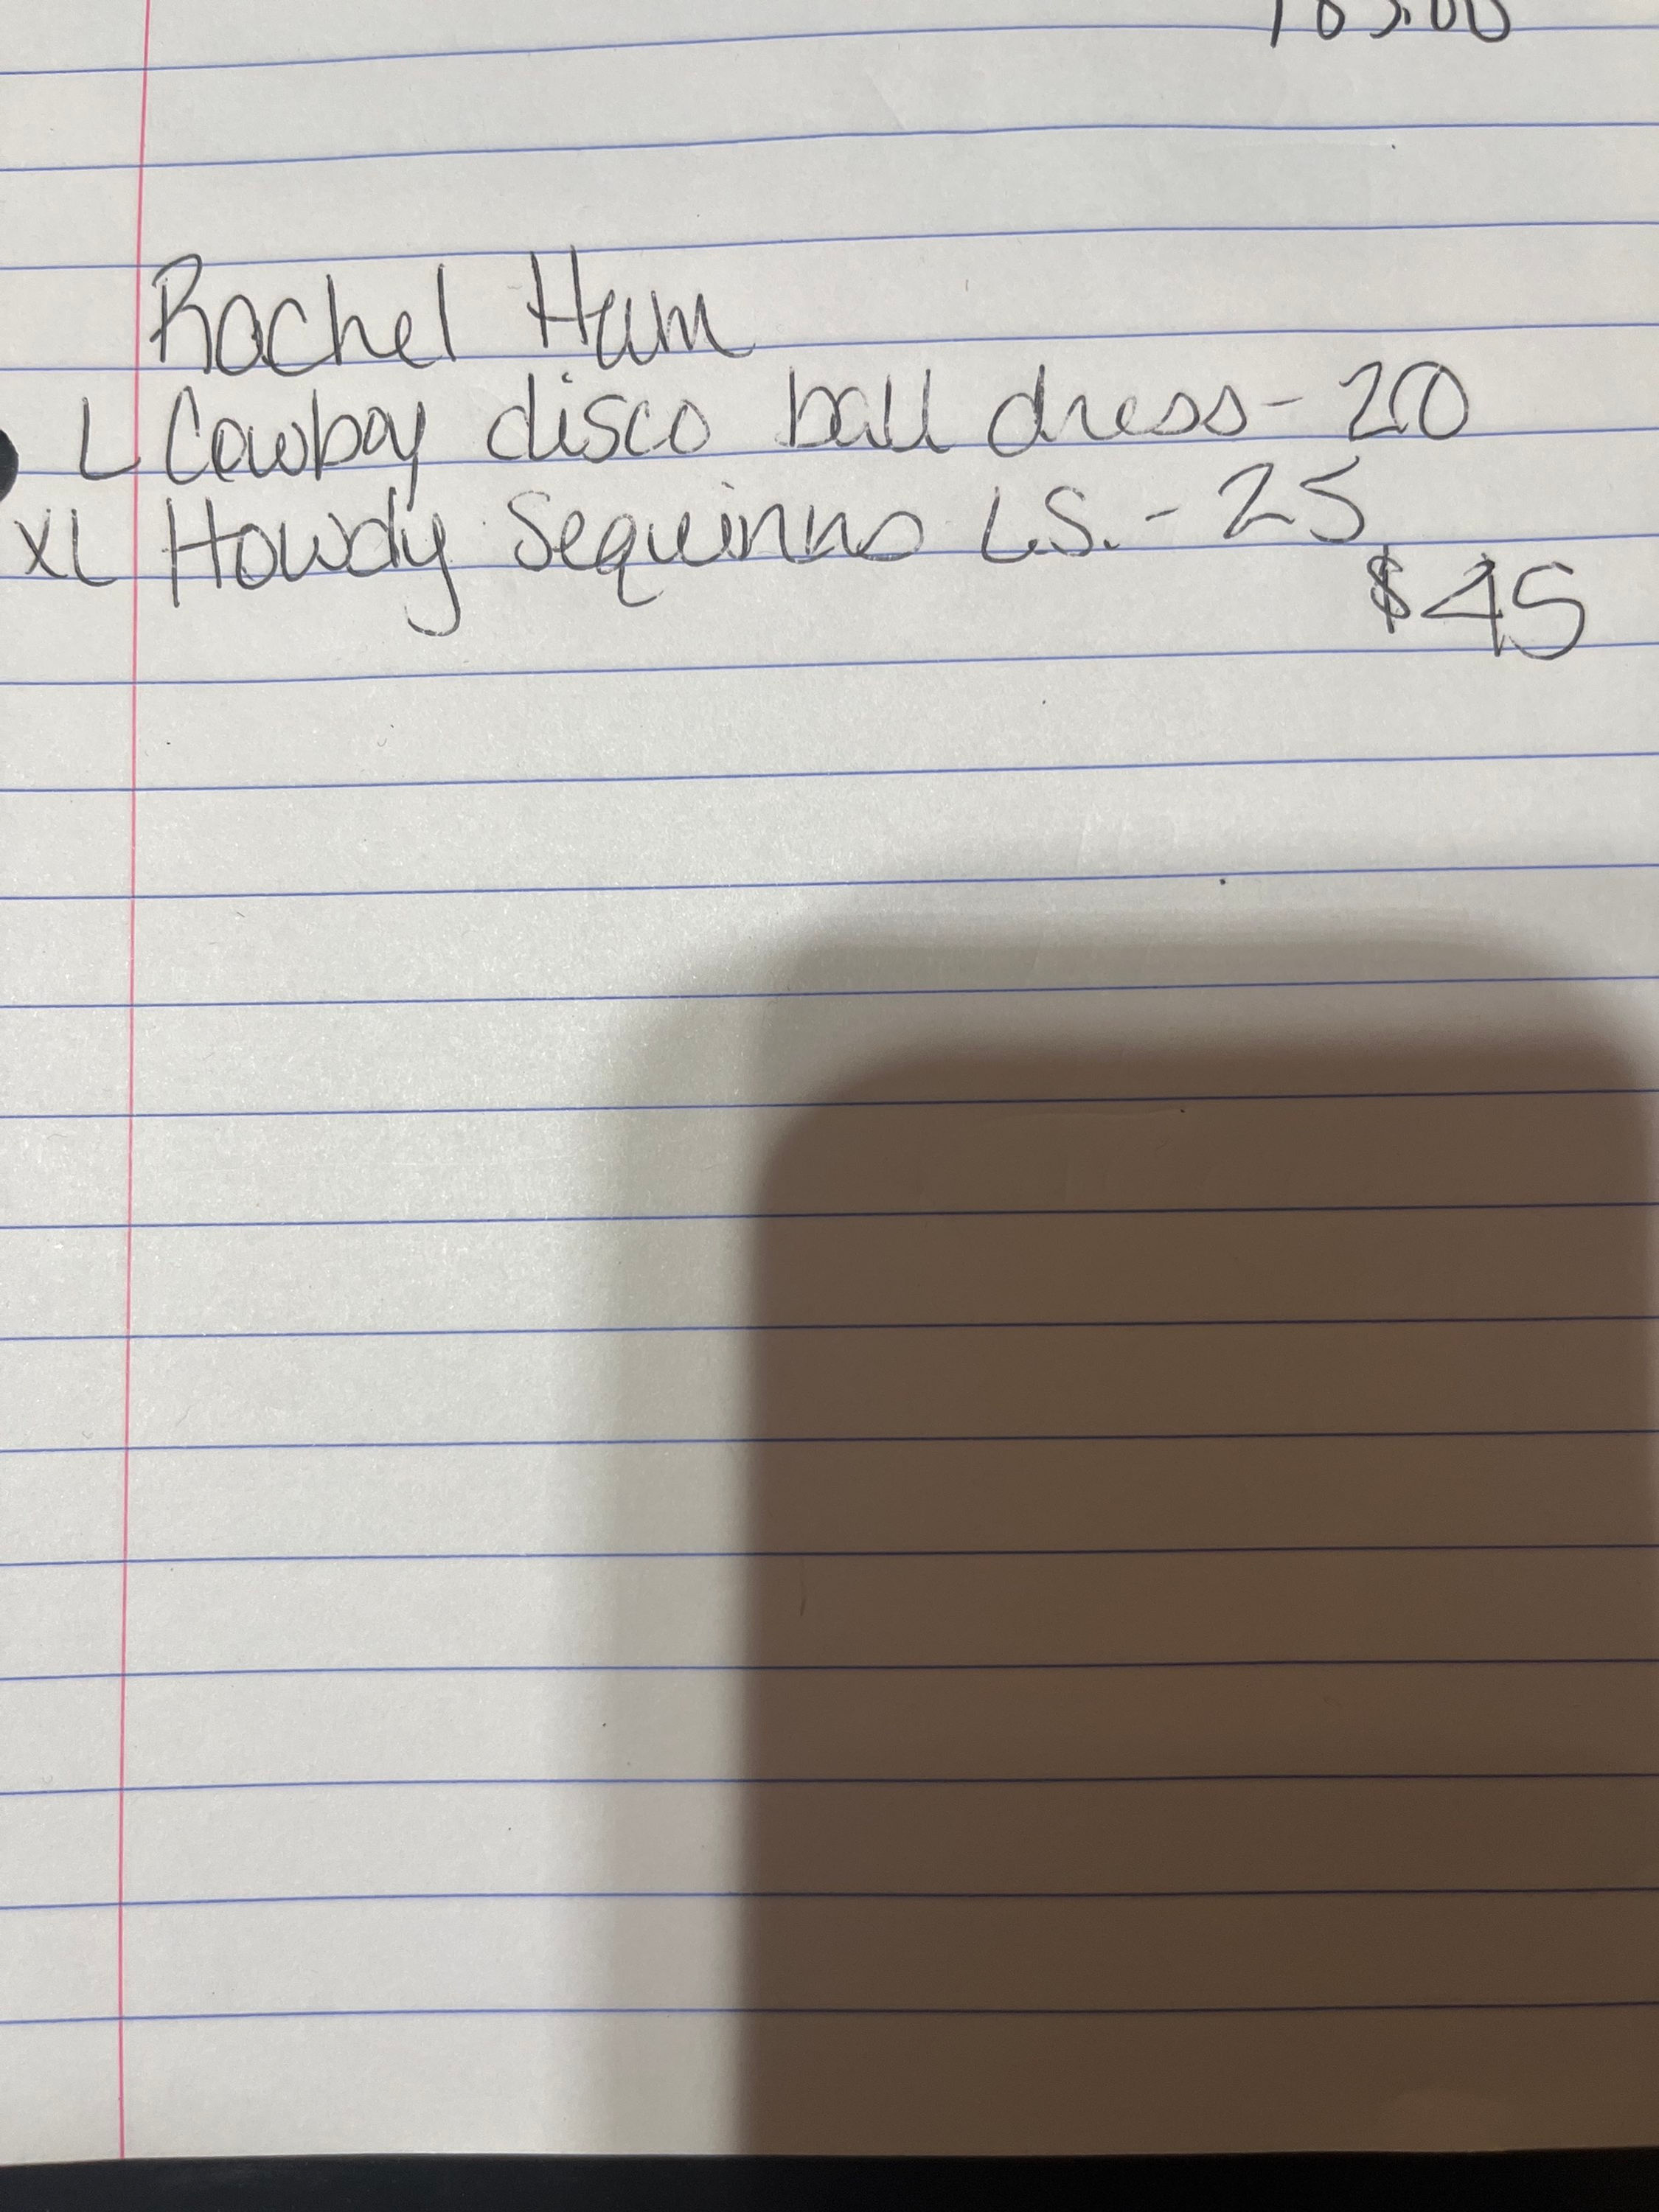 Rachel Ham
L Cowboy disco ball dress - 20
XL Howdy Sequinns L.S. - 25
$45